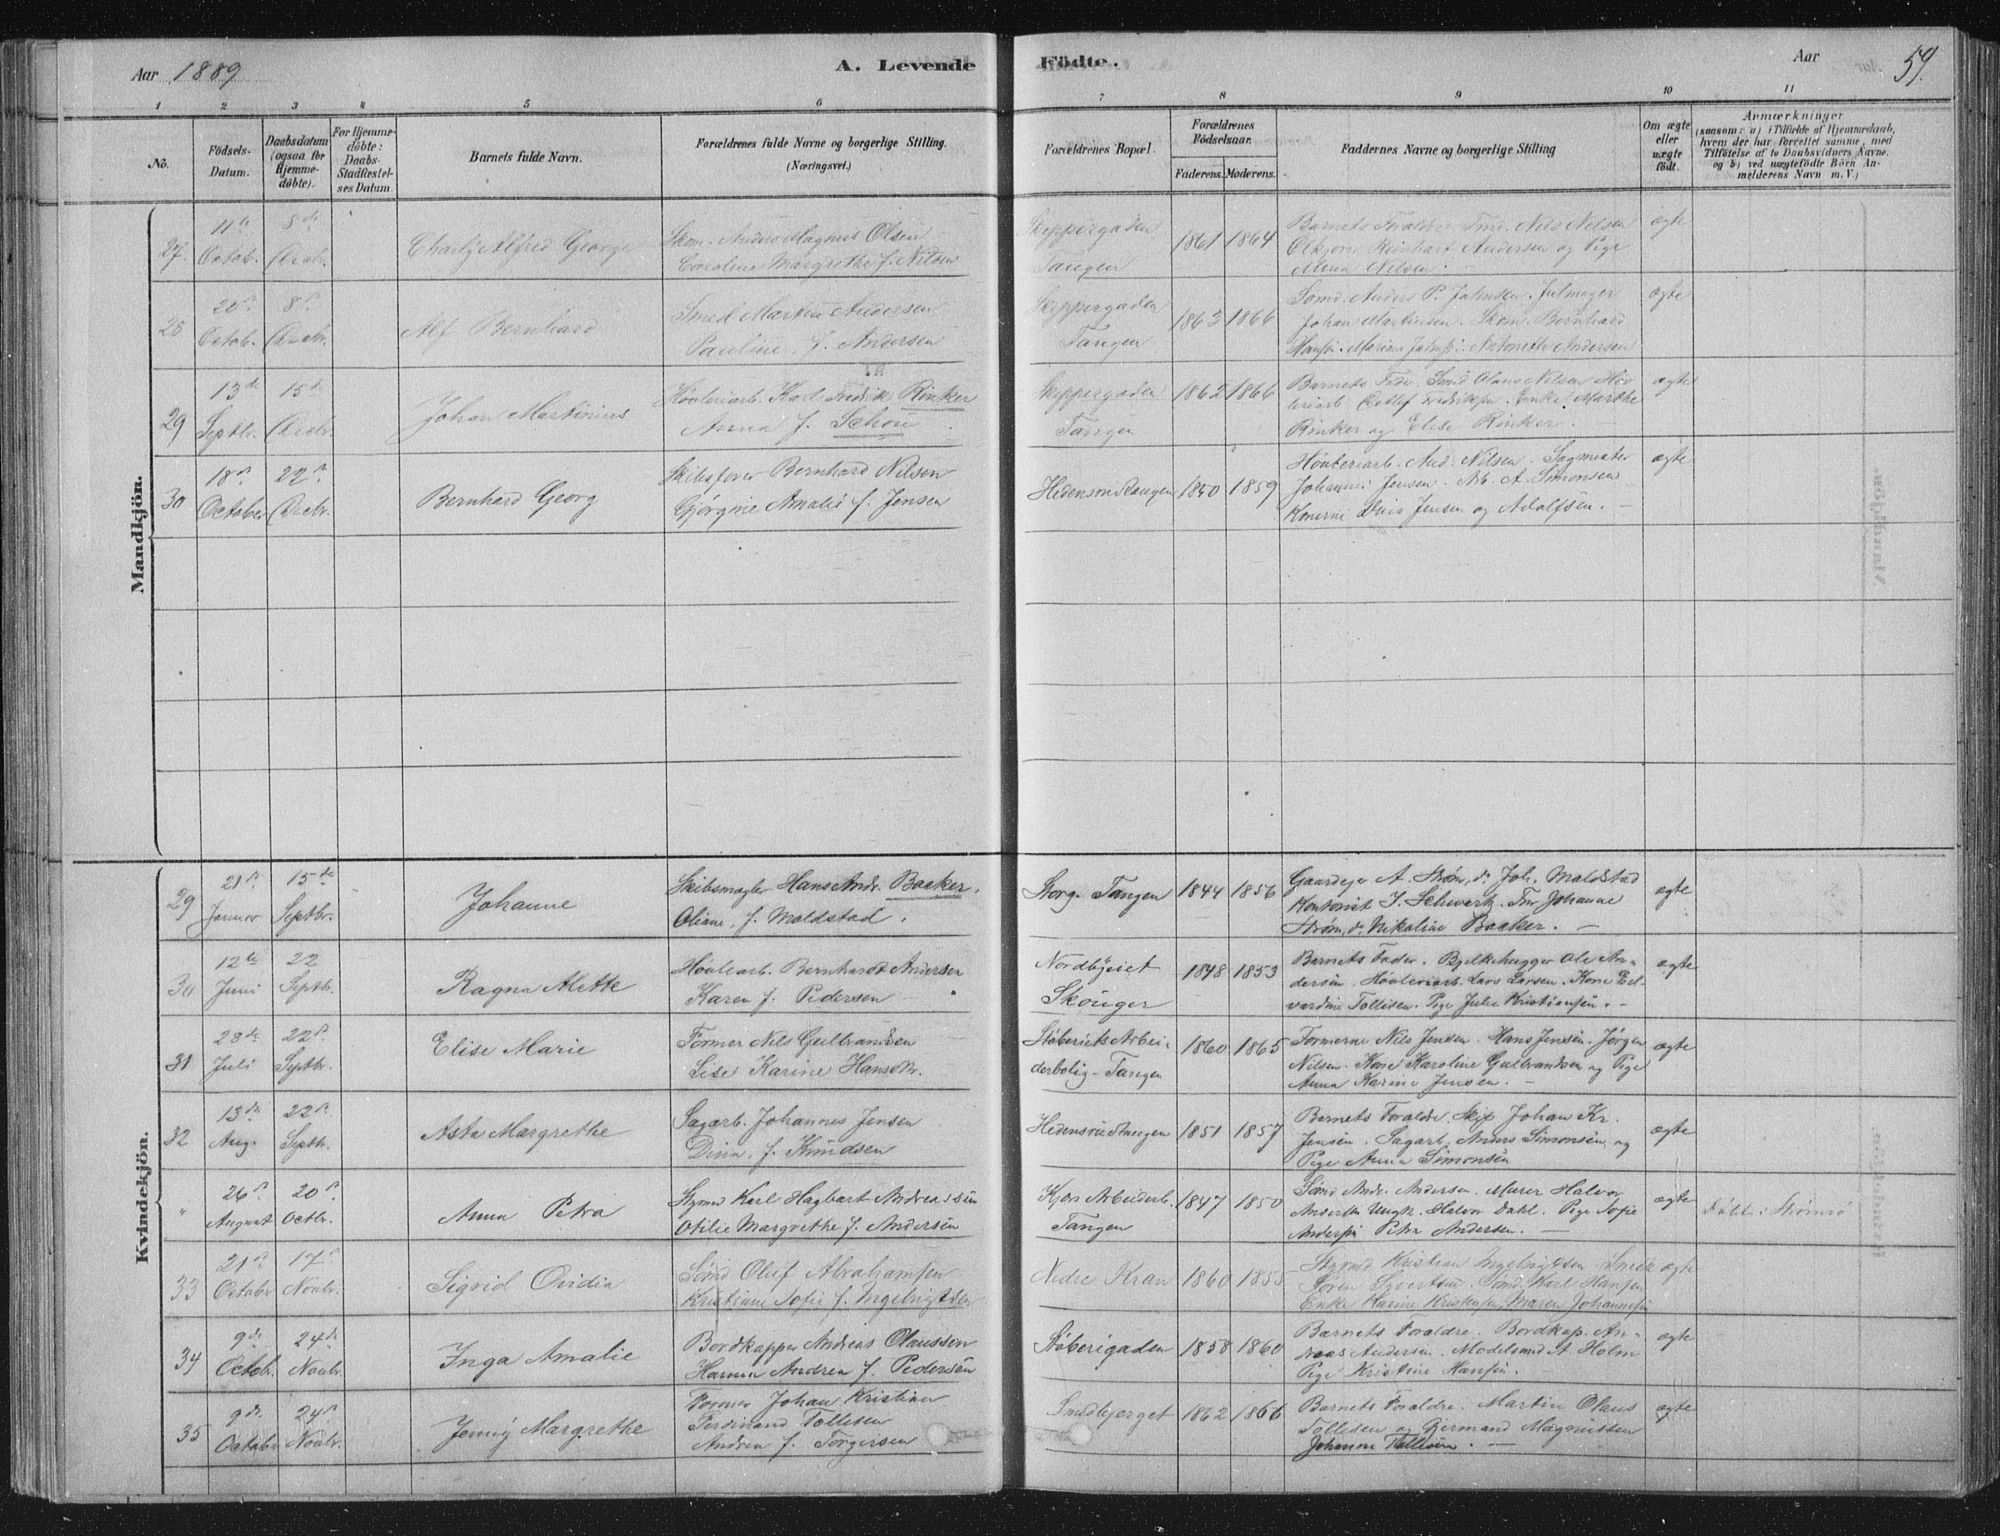 Aar 1889
A. Levende Födte.
Aar
59.
1 2 3 4 5 6 7 8 9 10 11
No.
Födsels-Datum.
Daabsdatum (ogsaa for Hjemme-döbte).
For Hjemme-döbte: Daabs-Stadfæstel-ses Datum.
Barnets fulde Navn.
Forældrenes fulde Navne og borgerlige Stilling. (Næringsvei.)
Forældrenes Bopæl.
Forældrenes Födselsaar.
Faderens. Moderens.
Faddernes Navne og borgerlige Stilling
Om ægte eller uægte födt.
Anmærkninger
(saasom: a) i Tilfælde af Hjemmedaab, hvem der har forrettet samme, med Tilföielse af to Daabsvidners Navne, og b) ved uægtefödte Börn An-melderens Navn m. V.)
Mandkjön.
27. 11te Octob. 8de Decbr.
Charly Alfred George
Skom. Anders Magnus Olsen
Caroline Margrethe f. Nilsen
Skippergaden
Tangen
1861 1864
Barnets Foraldre Smd. Nils Nilsen
Reinhart Andersen og Pige
Nilsen.
ægte
28 20d Octob. 8d Decbr.
Alf Bernhard
Smed Martin Andersen
Pauline f. Andersen
Skippergaden
Tangen
1863 1866
Sømd. Anders P. Jahnsen.
Johan Martinsen. Skom. Bernhard
Antonette Andersen
ægte
29 13de Septbr. 15de Decbr.
Johan Martinius
Høvleriarb. Karl Fredrik Rinker
Anna f. Schou
Skippergaden
Tangen
1862 1866
Barnets Fader. Smd Olaus Nilsen Høv
leriarb. Detlef Fredriksen. Enke Marthe
Rinker og Elise Rinker.
ægte
30 18de October 22d Decbr.
Bernhard Georg
Skibsfører Bernhard Nilsen
Gjørgine Amalie f. Jensen
Hedensrud Tangen
1850 1859
Høvleriarb. And. Nilsen. Sagmester
Johannes Jensen. Arb. A. Simonsen
Konerne Dina Jensen og Adolfsen.
ægte
Kvindekjön.
29 21d Januar 15de Septbr.
Johanne
Skibsmægler Hans Andr. Backer.
Oliane, f. Maldstad.
Storg. Tangen
1844 1856
Gaardejer A. Strøm, do Joh. Maldstad
Kontorist J. Schwartz. Fru Johanne
Strøm, do Nikoline Backer.
ægte
30 12te Juni 22 Septbr.
Ragna Alette
Høvlearb. Bernhardt Andersen
Karen f. Pedersen
Nordbyeiet
Skouger
1848 1853
Barnets Fader. Bjelkehugger Ole An-
dersen. Høvleriarb. Lars Larsen. Kone Ed-
vardine Tollisen. Pige Julie Kristiansen.
ægte
31 28de Juli 22d Septbr.
Elise Marie
Former Nils Gulbrandsen
Lise Karine Hansdtr.
Støberiets Arbei-
derbolig Tangen
1860 1865
Formerne Nils Jensen. Hans Jensen. Jørgen
Nilsen. Kone Karoline Gulbrandsen og Pige
Anna Karine Jensen.
ægte
32 13de Aug. 22d Septbr.
Asta Margrethe
Sagarb. Johannes Jensen
Dina f. Knudsen
Hedensrud Tangen
1851 1857
Barnets Foraldre. Skipf Johan Kr.
Jensen. Sagarb. Anders Simonsen og
Pige Anna Simonsen
ægte
" 26d August 20d Octbr.
Anna Petra
Styrmd Karl Hagbart Andreassen
Otilie Margrethe f. Andersen
Kjøs Arbeiderb.
Tangen
1847 1850
Sømd Andr. Andersen. Murer Halvor
Andersen Ungk. Halvor Dahl. Pige Sofie
Andersen Petra Andersen.
ægte
Født i Strømsø
33 21d October 17d Novbr.
Sigrid Ovidia
Sømd Oluf Abrahamsen
Kristiane Sofie f. Ingebrigtsen
Nedre Kran
1860 1855
Styrmd Kristian Ingebrigtsen. Snedk
Søren Syvertsen. Sømd Karl Hansen
Enke Karine Kristensen, Maren Johannesen
ægte
34 9de Octobr. 24de Novbr.
Inga Amalie
Bordkapper Andreas Olaussen
Hanna Andrea f. Pedersen
Støberigaden
1858 1860
Barnets Foraldre. Bordkap. An-
dreas Andersen. Modelsmd A. Holm
Pige Kristine Hansen.
ægte
35 9de October 24d Novbr.
Jenny Margrethe
Former Johan Kristian
Ferdinand Tollisen
Andrea f. Torgersen
Smedbjerget
1862 1866
Barnets Foraldre. Martin Olaus
Tollisen og Gjermand Magnussen
Johanne Tollisen.
ægte